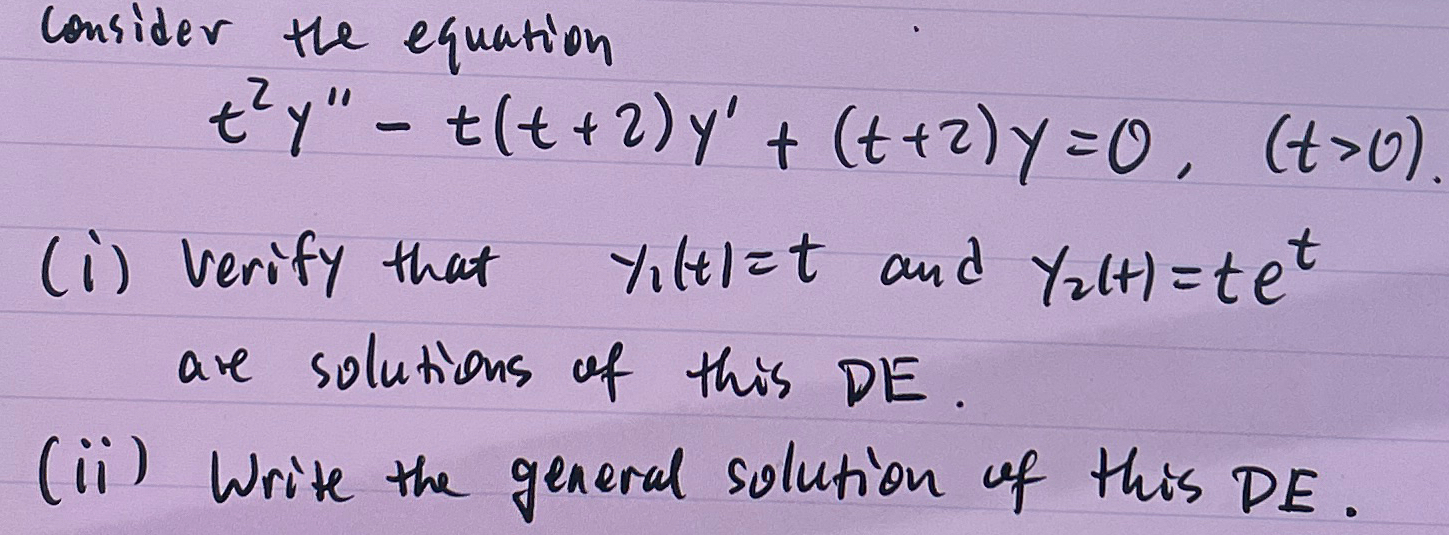 Consider the equation
t²y'' - t(t+2)y' + (t+2)y = 0, (t>0).
(i) Verify that y₁(t) = t and y₂(t) = te^t
are solutions of this DE.
(ii) Write the general solution of this DE.